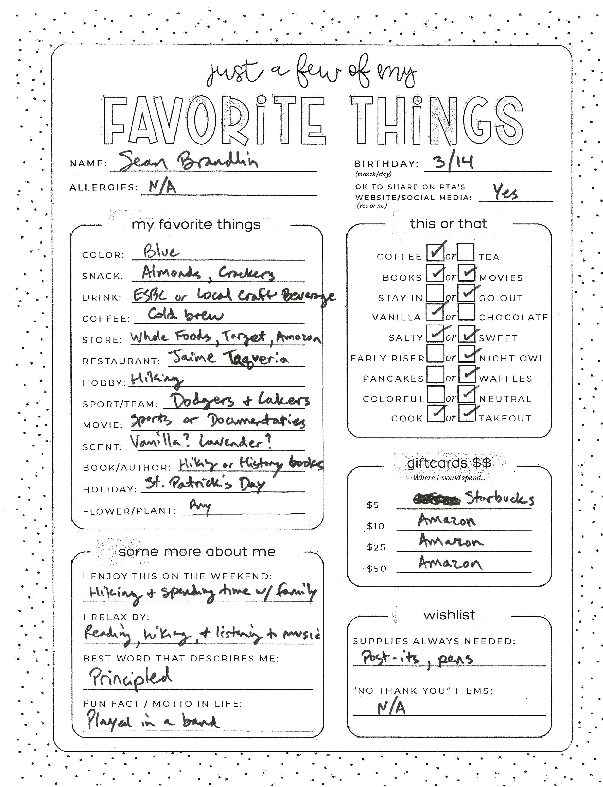 just a few of my
FAVORITE THINGS
NAME: Sean Brandlin
ALLERGIES: N/A
BIRTHDAY: 3/14
(month/day)
OK TO SHARE ON PTA'S
WEBSITE/SOCIAL MEDIA: Yes
(Yes or no)
my favorite things
COLOR: Blue
SNACK: Almonds, Crackers
DRINK: ESBC or Local Craft Beverage
COFFEE: Cold brew
STORE: Whole Foods, Target, Amazon
RESTAURANT: Jaime Taqueria
HOBBY: Hiking
SPORT/TEAM: Dodgers + Lakers
MOVIE: Sports or Documentaries
SCENT: Vanilla? Lavender?
BOOK/AUTHOR: Hiking or History books
HOLIDAY: St. Patrick's Day
FLOWER/PLANT: Any
this or that
COFFEE ✓ or TEA
BOOKS ✓ or ✓ MOVIES
STAY IN or ✓ GO OUT
VANILLA ✓ or CHOCOLATE
SALTY ✓ or ✓ SWEET
EARLY RISER or ✓ NIGHT OWL
PANCAKES or ✓ WAFFLES
COLORFUL or ✓ NEUTRAL
COOK ✓ or ✓ TAKEOUT
giftcards $$
Where I would spend...
$5 Starbucks
$10 Amazon
$25 Amazon
$50 Amazon
some more about me
I ENJOY THIS ON THE WEEKEND:
Hiking + spending time w/ family
I RELAX BY:
Reading, hiking, + listening to music
BEST WORD THAT DESCRIBES ME:
Principled
FUN FACT / MOTTO IN LIFE:
Played in a band
wishlist
SUPPLIES ALWAYS NEEDED:
Post-its, pens
"NO THANK YOU" ITEMS:
N/A